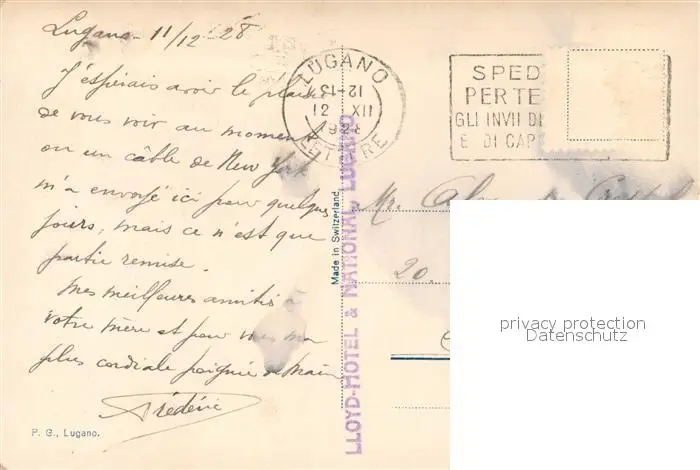 Lugano - 11/12 28
J'espérais avoir le plaisir
de vous voir au moment
où un câble de New York
m'a envoyé ici pour quelques
jours, mais ce n'est que
partie remise.
Mes meilleures amitiés à
votre mère et pour vous ma
plus cordiale poignée de main
Frédéric
P. G., Lugano.
LUGANO
12-13
12 XII
LETTERE
SPED
PER TE
GLI INVII DI
E DI CAP
Made in Switzerland.
LLOYD-HOTEL & NATIONAL, LUGANO
Mr.
20.
privacy protection
Datenschutz